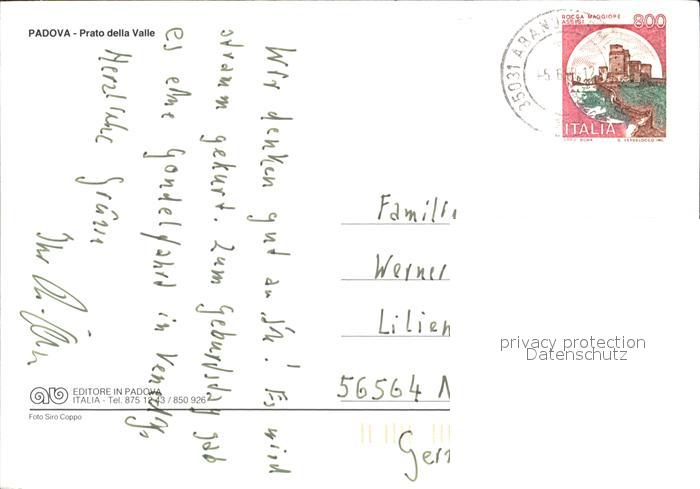 PADOVA - Prato della Valle
Wir denken gut an Sie! Es wird
stramm gekurt. Zum Geburtstag gab
es eine Gondelfahrt in Venedig.
Herzliche Grüsse
Ihr
EDITORE IN PADOVA
ITALIA - Tel. 875 12 43 / 850 926
Foto Siro Coppo
ROCCA MAGGIORE
ASSISI
800
ITALIA
35031 ABANO
Famili
Werner
Lilien
56564 N
Ger
privacy protection
Datenschutz